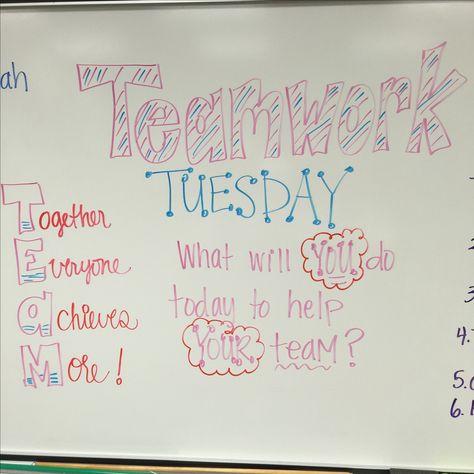 ah
Teamwork
TUESDAY
Together
Everyone
achieves
More!
What will YOU do
today to help
YOUR team?
3
4.
5.
6.